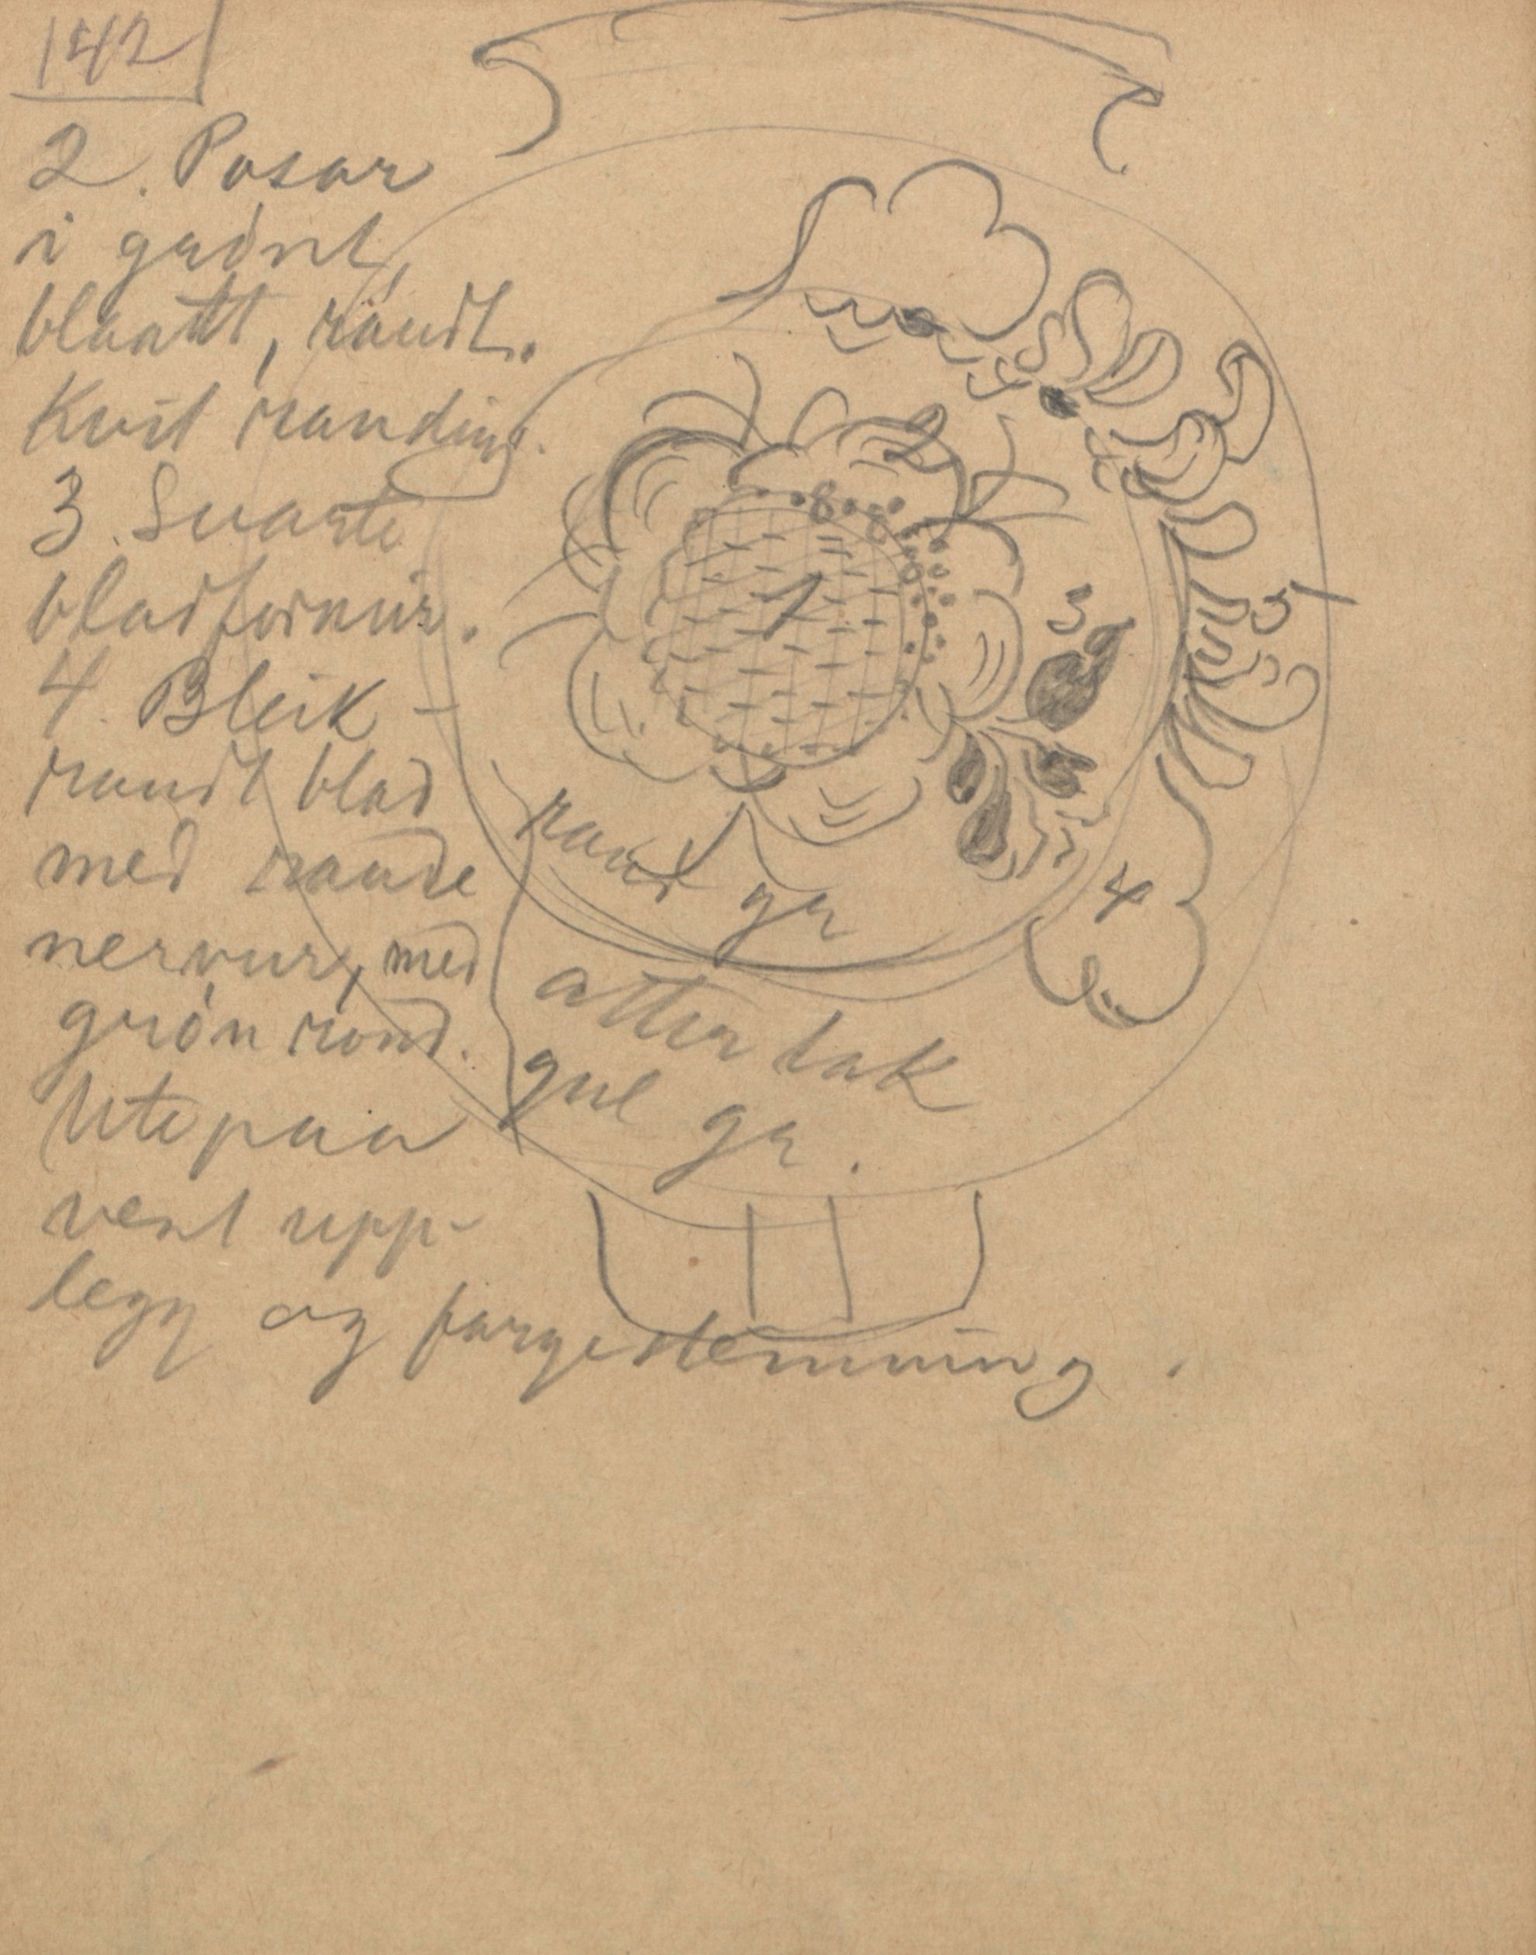 142
2. Posar
i grönt,
blaatt, raudt.
Kvit randing.
3. Svarte
bladformir.
4. Bleik-
raudt blad
med raude
nervur, med
grön rand.
Utepaa
vent upp-
legg og fargestemning.
2
1
3
5
4
raud gr
atter lak
gul gr.